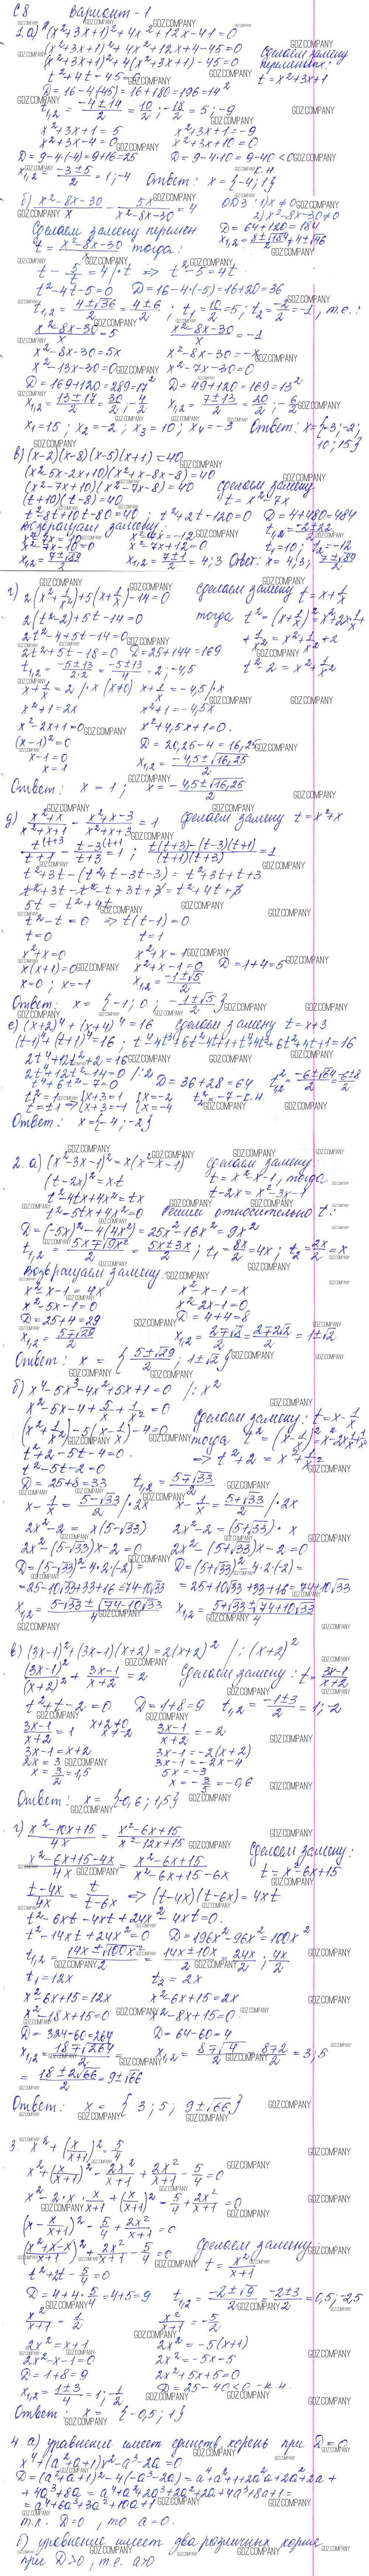 С8 Вариант - 1
1.а) (x²+3x+1)²+4x²+12x-41=0
(x²+3x+1)²+4x²+12x+4-45=0
(x²+3x+1)²+4(x²+3x+1)-45=0 Сделаем замену переменных.
t²+4t-45=0 t=x²+3x+1
D=16-4(45)=16+180=196=14²
t₁,₂ = (-4±14)/2 = 10/2; -18/2 = 5; -9
x²+3x+1=5 x²+3x+1=-9
x²+3x-4=0 x²+3x+10=0
D=9-4(-4)=9+16=25 D=9-4·10=9-40<0
x₁,₂ = (-3±5)/2 = 1; -4 Ответ: x={-4;1}
б) (x²-8x-30)/x - 5x/(x²-8x-30) = 4 ОДЗ: 1) x≠0
2) x²-8x-30≠0
Сделаем замену перемен D=64+120=184
t=(x²-8x-30)/x тогда:
t - 5/t = 4 /·t ⇒ t²-5=4t
t²-4t-5=0 D=16-4(-5)=16+20=36
t₁,₂ = (4±√36)/2 = (4±6)/2 t₁=10/2=5; t₂=-2/2=-1, т.е.:
(x²-8x-30)/x=5 (x²-8x-30)/x=-1
x²-8x-30=5x x²-8x-30=-x
x²-13x-30=0 x²-7x-30=0
D=169+120=289=17² D=49+120=169=13²
x₁,₂ = (13±17)/2 = 30/2; -4/2 x₁,₂ = (7±13)/2 = 20/2; -6/2
x₁=15; x₂=-2; x₃=10; x₄=-3 Ответ: x={-3;-2;
10;15}
в) (x-2)(x-8)(x-5)(x+1)=40
(x²-5x-2x+10)(x²+x-8x-8)=40
(x²-7x+10)(x²-7x-8)=40 Сделаем замену
(t+10)(t-8)=40 t=x²-7x
t²-8t+10t-80=40; t²+2t-120=0 D=4+480=484
Возвращаем замену: t₁,₂=(-2±22)/2
x²-7x=10 x²-7x=-12 t₁=10; t₂=-12
x²-7x-10=0 x²-7x+12=0
x₁,₂=(7±√89)/2 x₁,₂=(7±1)/2=4;3 Ответ: x=4;3; (7±√89)/2
г) 2(x²+1/x²)+5(x+1/x)-14=0 Сделаем замену t=x+1/x
2(t²-2)+5t-14=0 тогда t²=(x+1/x)²=x²+2x·1/x+
2t²-4+5t-14=0 +1/x²=x²+1/x²+2
2t²+5t-18=0 D=25+144=169
t₁,₂=(-5±13)/(2·2)=(-5±13)/4=2; -4,5 t²-2=x²+1/x²
x+1/x=2 /·x (x≠0) x+1/x=-4,5 /·x
x²+1=2x x²+1=-4,5x
x²-2x+1=0 x²+4,5x+1=0.
(x-1)²=0 D=20,25-4=16,25
x-1=0
x=1 x₁,₂=(-4,5±√16,25)/2
Ответ: x=1; x=(-4,5±√16,25)/2
д) (x²+x)/(x²+x+1) - (x²+x-3)/(x²+x+3) = 1 Сделаем замену t=x²+x
t/(t+1) - (t-3)/(t+3) = 1; (t(t+3)-(t-3)(t+1))/((t+1)(t+3))=1
t²+3t-(t²+t-3t-3)=t²+3t+t+3
t²+3t-t²-t+3t+3=t²+4t+3
5t=t²+4t
t²-t=0 ⇒ t(t-1)=0
t=0 t=1
x²+x=0 x²+x=1
x(x+1)=0 x²+x-1=0 D=1+4=5
x=0; x=-1 x₁,₂=(-1±√5)/2
Ответ: x={-1; 0; (-1±√5)/2}
е) (x+2)⁴+(x+4)⁴=16 Сделаем замену t=x+3
(t-1)⁴+(t+1)⁴=16; t⁴-4t³+6t²-4t+1+t⁴+4t³+6t²+4t+1=16
2t⁴+12t²+2=16
2t⁴+12t²-14=0 /:2
t⁴+6t²-7=0 D=36+28=64 t²₁,₂=(-6±√64)/2=(-6±8)/2
t²=1 t²=-7-К.Н.
t=±1 ⇒ x+3=1 x=-2
x+3=-1 x=-4
Ответ: x={-4;-2}
2. а) (x²-3x-1)²=x(x²-x-1) Сделаем замену:
(t-2x)²=x·t t=x²-x-1, тогда
t²-4tx+4x²=tx t-2x=x²-3x-1
t²-5tx+4x²=0 Решим относительно t:
D=(-5x)²-4(4x²)=25x²-16x²=9x²
t₁,₂=(5x±√9x²)/2=(5x±3x)/2; t₁=8x/2=4x t₂=2x/2=x
Возвращаем замену.
x²-x-1=4x x²-x-1=x
x²-5x-1=0 x²-2x-1=0
D=25+4=29 D=4+4=8
x₁,₂=(5±√29)/2 x₁,₂=(2±√8)/2=(2±2√2)/2=1±√2
Ответ: x={(5±√29)/2; 1±√2}
б) x⁴-5x³-4x²+5x+1=0 /:x²
x²-5x-4+5/x+1/x²=0
(x²+1/x²)-5(x-1/x)-4=0 Сделаем замену: t=x-1/x
t²+2-5t-4=0. тогда t²=(x-1/x)²=x²-2x·1/x+1/x²
t²-5t-2=0 ⇒ t²+2=x²+1/x²
D=25+8=33 t₁,₂=(5±√33)/2
x-1/x=(5-√33)/2 /·2x x-1/x=(5+√33)/2 /·2x
2x²-2=x(5-√33) 2x²-2=(5+√33)·x
2x²-(5-√33)x-2=0 2x²-(5+√33)x-2=0
D=(5-√33)²-4·2·(-2)= D=(5+√33)²-4·2·(-2)=
=25-10√33+33+16=74-10√33 =25+10√33+33+16=74+10√33
x₁,₂=(5-√33±√(74-10√33))/4 x₁,₂=(5+√33±√(74+10√33))/4
в) (3x-1)²+(3x-1)(x+2)=2(x+2)² /:(x+2)²
(3x-1)²/(x+2)²+(3x-1)/(x+2)=2 Сделаем замену: t=(3x-1)/(x+2)
t²+t-2=0 D=1+8=9 t₁,₂=(-1±3)/2=1;-2
(3x-1)/(x+2)=1 x+2≠0 x≠-2 (3x-1)/(x+2)=-2
3x-1=x+2 3x-1=-2(x+2)
2x=3 3x-1=-2x-4
x=3/2=1,5 5x=-3
x=-3/5=-0,6
Ответ: x={-0,6; 1,5}
г) (x²-10x+15)/4x=(x²-6x+15)/(x²-12x+15)
(x²-6x+15-4x)/4x=(x²-6x+15)/(x²-6x+15-6x) Сделаем замену:
t=x²-6x+15
(t-4x)/4x=t/(t-6x) ⇒ (t-4x)(t-6x)=4xt
t²-6xt-4xt+24x²-4xt=0.
t²-14xt+24x²=0 D=196x²-96x²=100x²
t₁,₂=(14x±√100x²)/2=(14x±10x)/2=24x/2; 4x/2
t₁=12x t₂=2x
x²-6x+15=12x x²-6x+15=2x
x²-18x+15=0 x²-8x+15=0.
D=324-60=264 D=64-60=4
x₁,₂=(18±√264)/2= x₁,₂=(8±√4)/2=(8±2)/2=3;5
=(18±2√66)/2=9±√66
Ответ: x={3; 5; 9±√66}
3. x²+(x/(x+1))²=5/4
x²+(x/(x+1))²-2x²/(x+1)+2x²/(x+1)-5/4=0
x²-2·x·x/(x+1)+(x/(x+1))²-5/4+2x²/(x+1)=0
(x-x/(x+1))²-5/4+2x²/(x+1)=0
((x²+x-x)/(x+1))²+2x²/(x+1)-5/4=0 Сделаем замену
t²+2t-5/4=0 t=x²/(x+1)
D=4+4·5/4=4+5=9 t₁,₂=(-2±√9)/2=(-2±3)/2=0,5; -2,5
x²/(x+1)=1/2 x²/(x+1)=-5/2
2x²=x+1 2x²=-5(x+1)
2x²-x-1=0 2x²=-5x-5
D=1+8=9 2x²+5x+5=0
x₁,₂=(1±3)/4=1; -1/2 D=25-40<0 - к.н.
Ответ: x={-0,5; 1}
4. а) уравнение имеет единств. корень при D=0
x⁴+(a²+a+1)x²-a³-2a=0
D=(a²+a+1)²-4(-a³-2a)=a⁴+a²+1+2a³+2a²+2a+
+4a³+8a=a⁴+a²+2a³+2a²+2a+4a³+8a+1=
=a⁴+6a³+3a²+10a+1
т.к. D=0, то a=0.
б) уравнение имеет два различных корня
при D>0, т.е. a>0